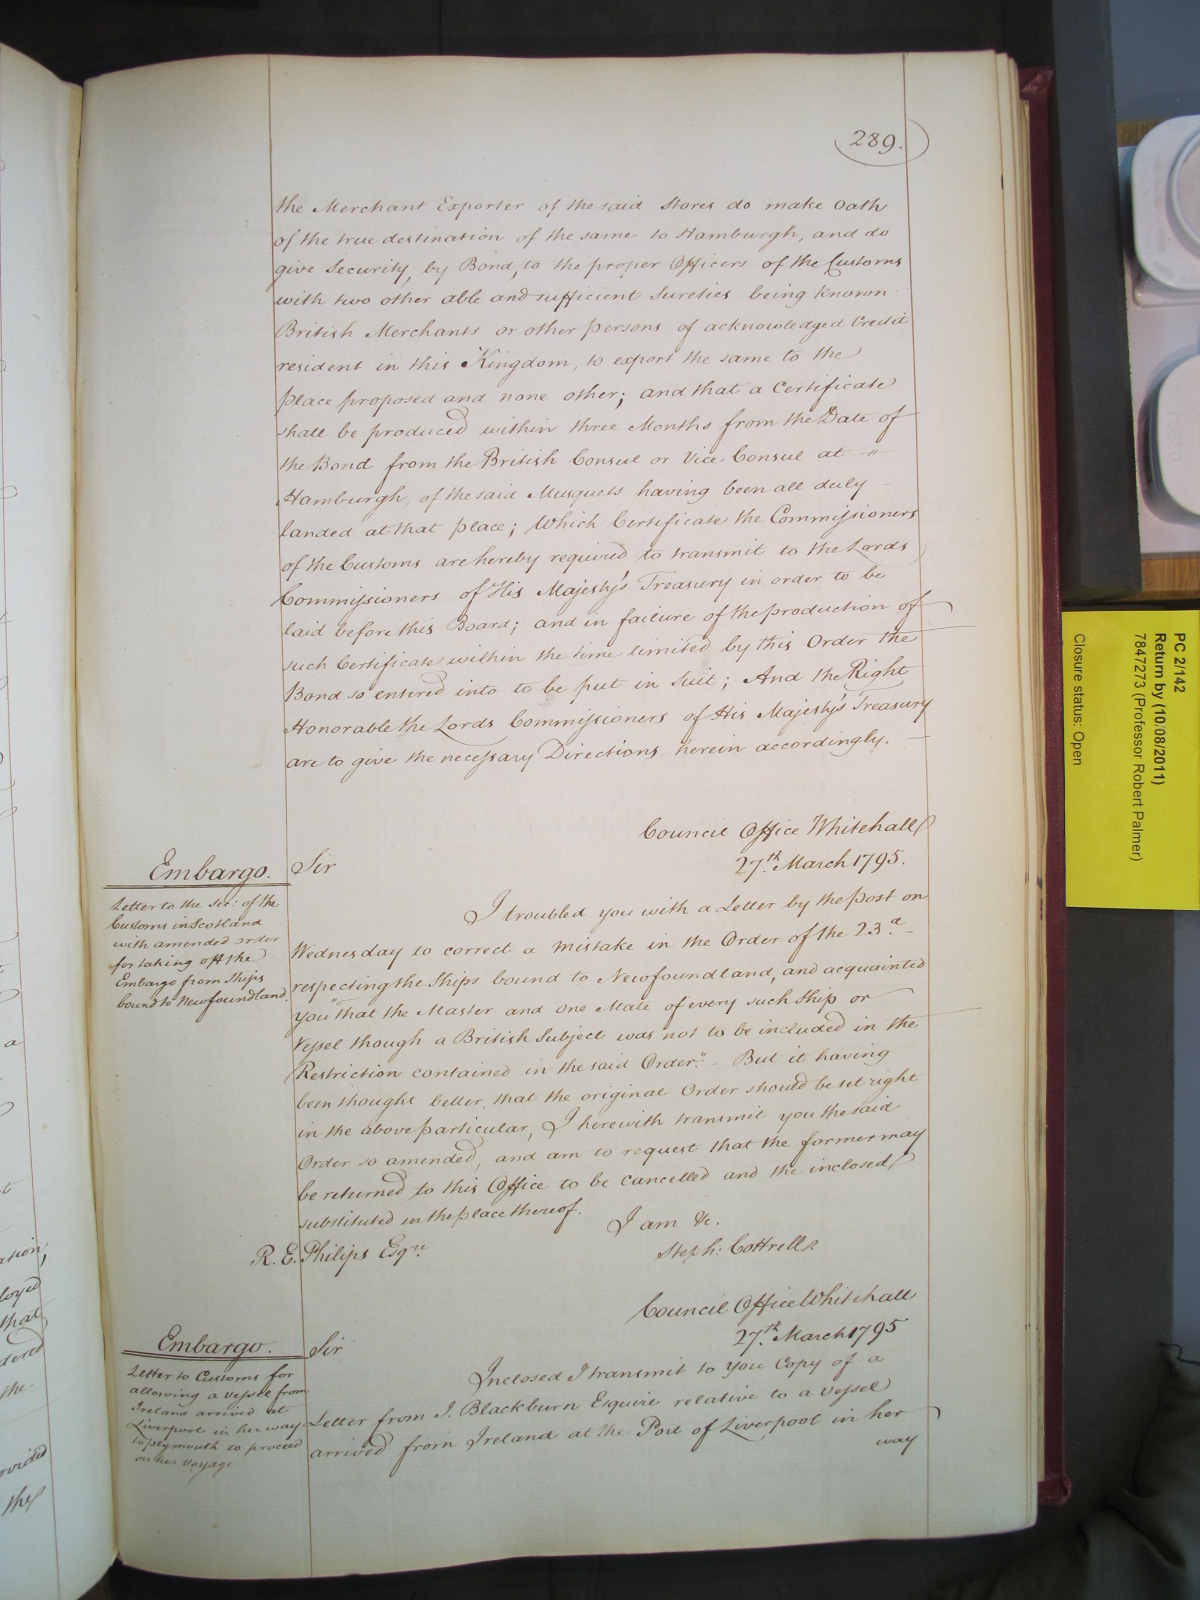 289.
the Merchant Exporter of the said Stores do make Oath
of the true destination of the same to Hamburgh, and do
give Security, by Bond, to the proper Officers of the Customs
with two other able and sufficient Sureties being known
British Merchants or other persons of acknowledged Credit
resident in this Kingdom, to export the same to the
place proposed and none other; and that a Certificate
shall be produced within three Months from the Date of
the Bond from the British Consul or Vice Consul at
Hamburgh, of the said Musquets having been all duly
landed at that place; Which Certificate the Commissioners
of the Customs are hereby required to transmit to the Lords
Commissioners of His Majesty's Treasury in order to be
laid before this Board; and in failure of the production of
such Certificate within the time limited by this Order the
Bond so entered into to be put in Suit; And the Right
Honorable the Lords Commissioners of His Majesty's Treasury
are to give the necessary Directions herein accordingly. —
Council Office Whitehall
27th March 1795.
Embargo.
Letter to the Sec: of the
Customs in Scotland
with amended order
for taking off the
Embargo from Ships
bound to Newfoundland.
Sir
I troubled you with a Letter by the post on
Wednesday to correct a mistake in the Order of the 23d
respecting the Ships bound to Newfoundland, and acquainted
you "that the Master and one Mate of every such Ship or
Vessel though a British Subject was not to be included in the
Restriction contained in the said Order". – But it having
been thought better, that the original Order should be set right
in the above particular, I herewith transmit you the said
Order so amended, and am to request that the former may
be returned to this Office to be cancelled and the inclosed
substituted in the place thereof.
I am &c.
Steph: Cottrell
R. E. Philips Esqre
Council Office Whitehall
27th March 1795
Embargo.
Letter to Customs for
allowing a Vessel from
Ireland arrived at
Liverpool in her way
to plymouth to proceed
on her Voyage.
Sir
Inclosed I transmit to you Copy of a
Letter from J. Blackburn Esquire relative to a Vessel
arrived from Ireland at the Port of Liverpool in her
way
PC 2/142
Return by (10/08/2011)
7847273 (Professor Robert Palmer)
Closure status: Open